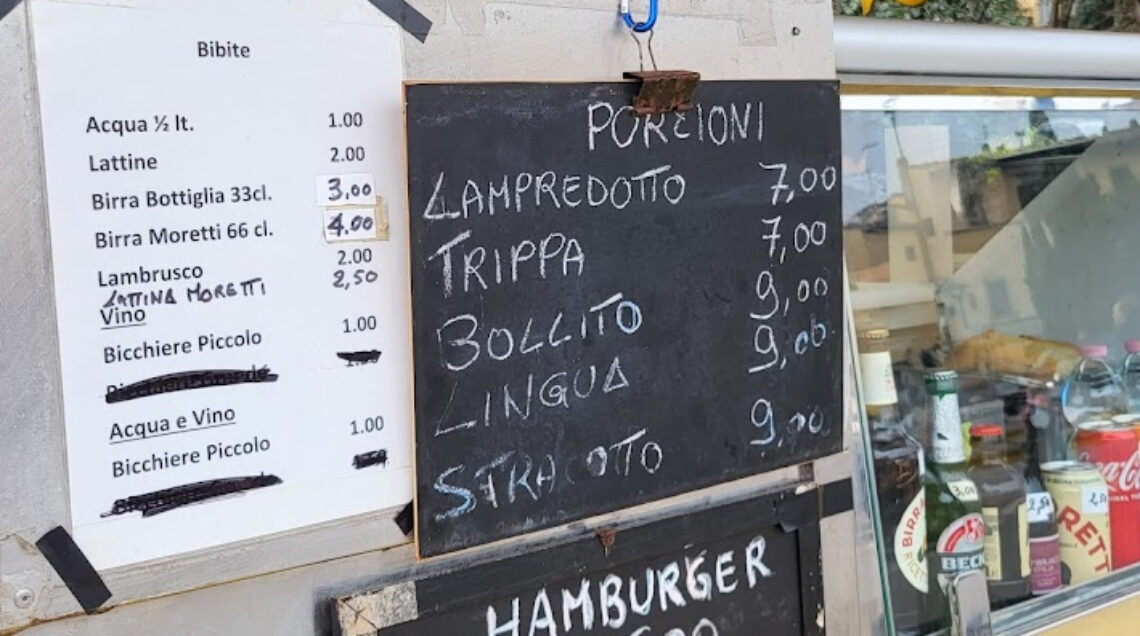 Bibite
Acqua ½ lt. 1.00
Lattine 2.00
Birra Bottiglia 33cl. 3.00
Birra Moretti 66 cl. 4.00
Lambrusco 2.00
LATTINA MORETTI 2,50
Vino
Bicchiere Piccolo 1.00
Acqua e Vino
Bicchiere Piccolo 1.00
PORZIONI
LAMPREDOTTO 7,00
TRIPPA 7,00
BOLLITO 9,00
LINGUA 9,00
STRACOTTO 9,00
HAMBURGER
BIRR
3,00
BECK
2,50
RETT
Coca